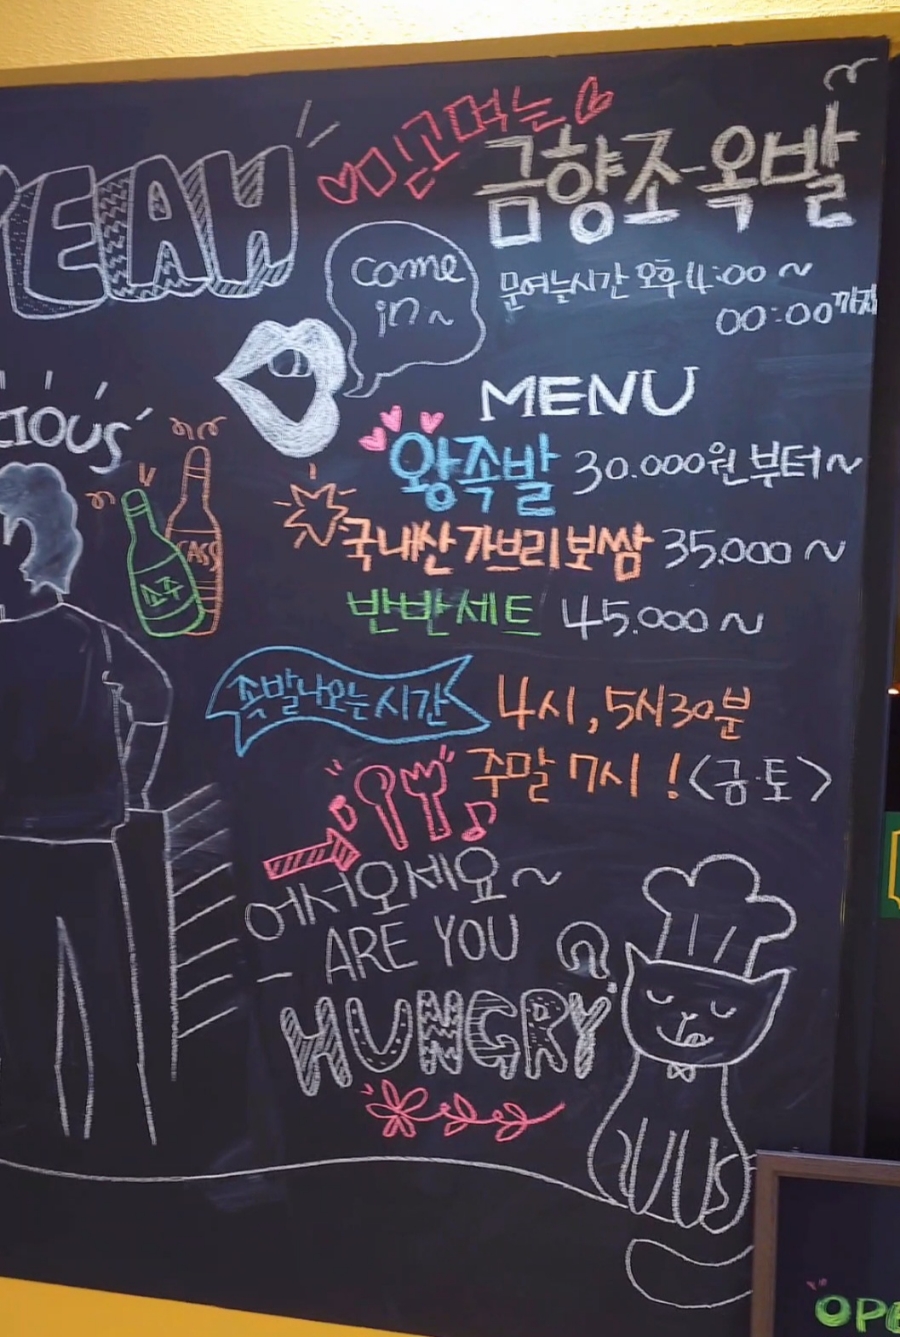 YEAH
믿고먹는
금향조-옥발
come
in~
문여는시간 오후 4:00 ~
00:00까지
MENU
CIOUS
왕족발 30.000원부터~
국내산가브리보쌈 35.000 ~
CASS
소주
반반세트 45.000~
족발나오는시간 4시, 5시30분
주말 7시! <금·토>
어서오세요~
ARE YOU
HUNGRY?
OPE